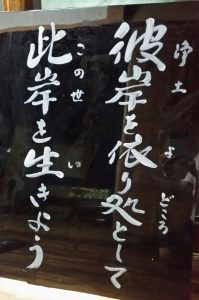 彼岸を依り処として
浄土 よ どころ
此岸を生きよう
この世 い